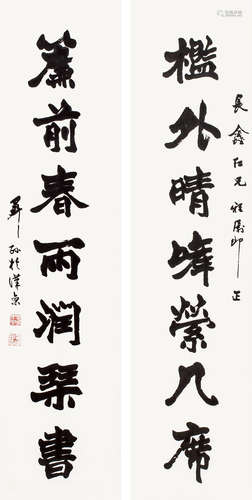 長鑫仁兄雅屬即正
檻外晴峰縈几席
簾前春雨潤琴書